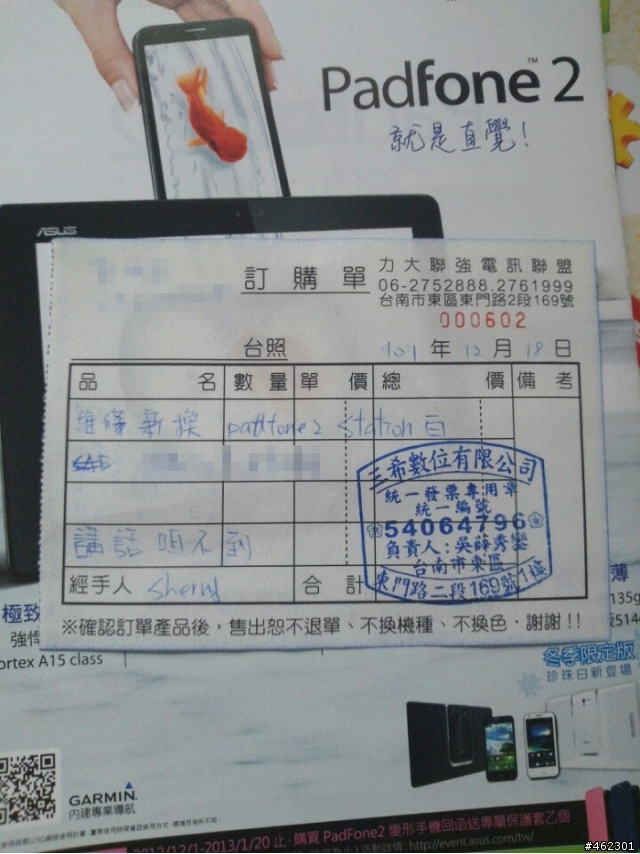 PadFone™ 2
就是直覺!
ASUS
訂購單
力大聯強電訊聯盟
06-2752888.2761999
台南市東區東門路2段169號
000602
台照
101 年 12 月 18 日
品名 數量 單價 總價 備考
維修新換 padfone2 station 白
講話 不到
三希數位有限公司
統一發票專用章
統一編號
54064796
負責人:吳薛秀鑾
台南市東區
東門路二段169號1樓
經手人 Sherry 合計
※確認訂單產品後,售出恕不退單、不換機種、不換色,謝謝!!
極致
強悍
ortex A15 class
薄
135g
514
冬季限定版
珍珠白新登場
GARMIN
內建專業導航
2012/12/1-2013/1/20 止,購買 PadFone2 變形手機回函送專屬保護套乙個
http://event.asus.com/tw/
#462301